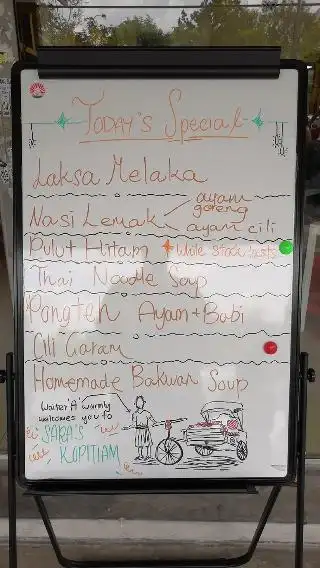 Today's Special
Laksa Melaka
Nasi Lemak
ayam goreng
ayam cili
Pulut Hitam while stock lasts
Thai Noodle Soup
Pongteh Ayam + Babi
Cili Garam
Homemade Bakwan Soup
Waiter 'A' warmly
welcomes you to
SARA'S
KOPITIAM